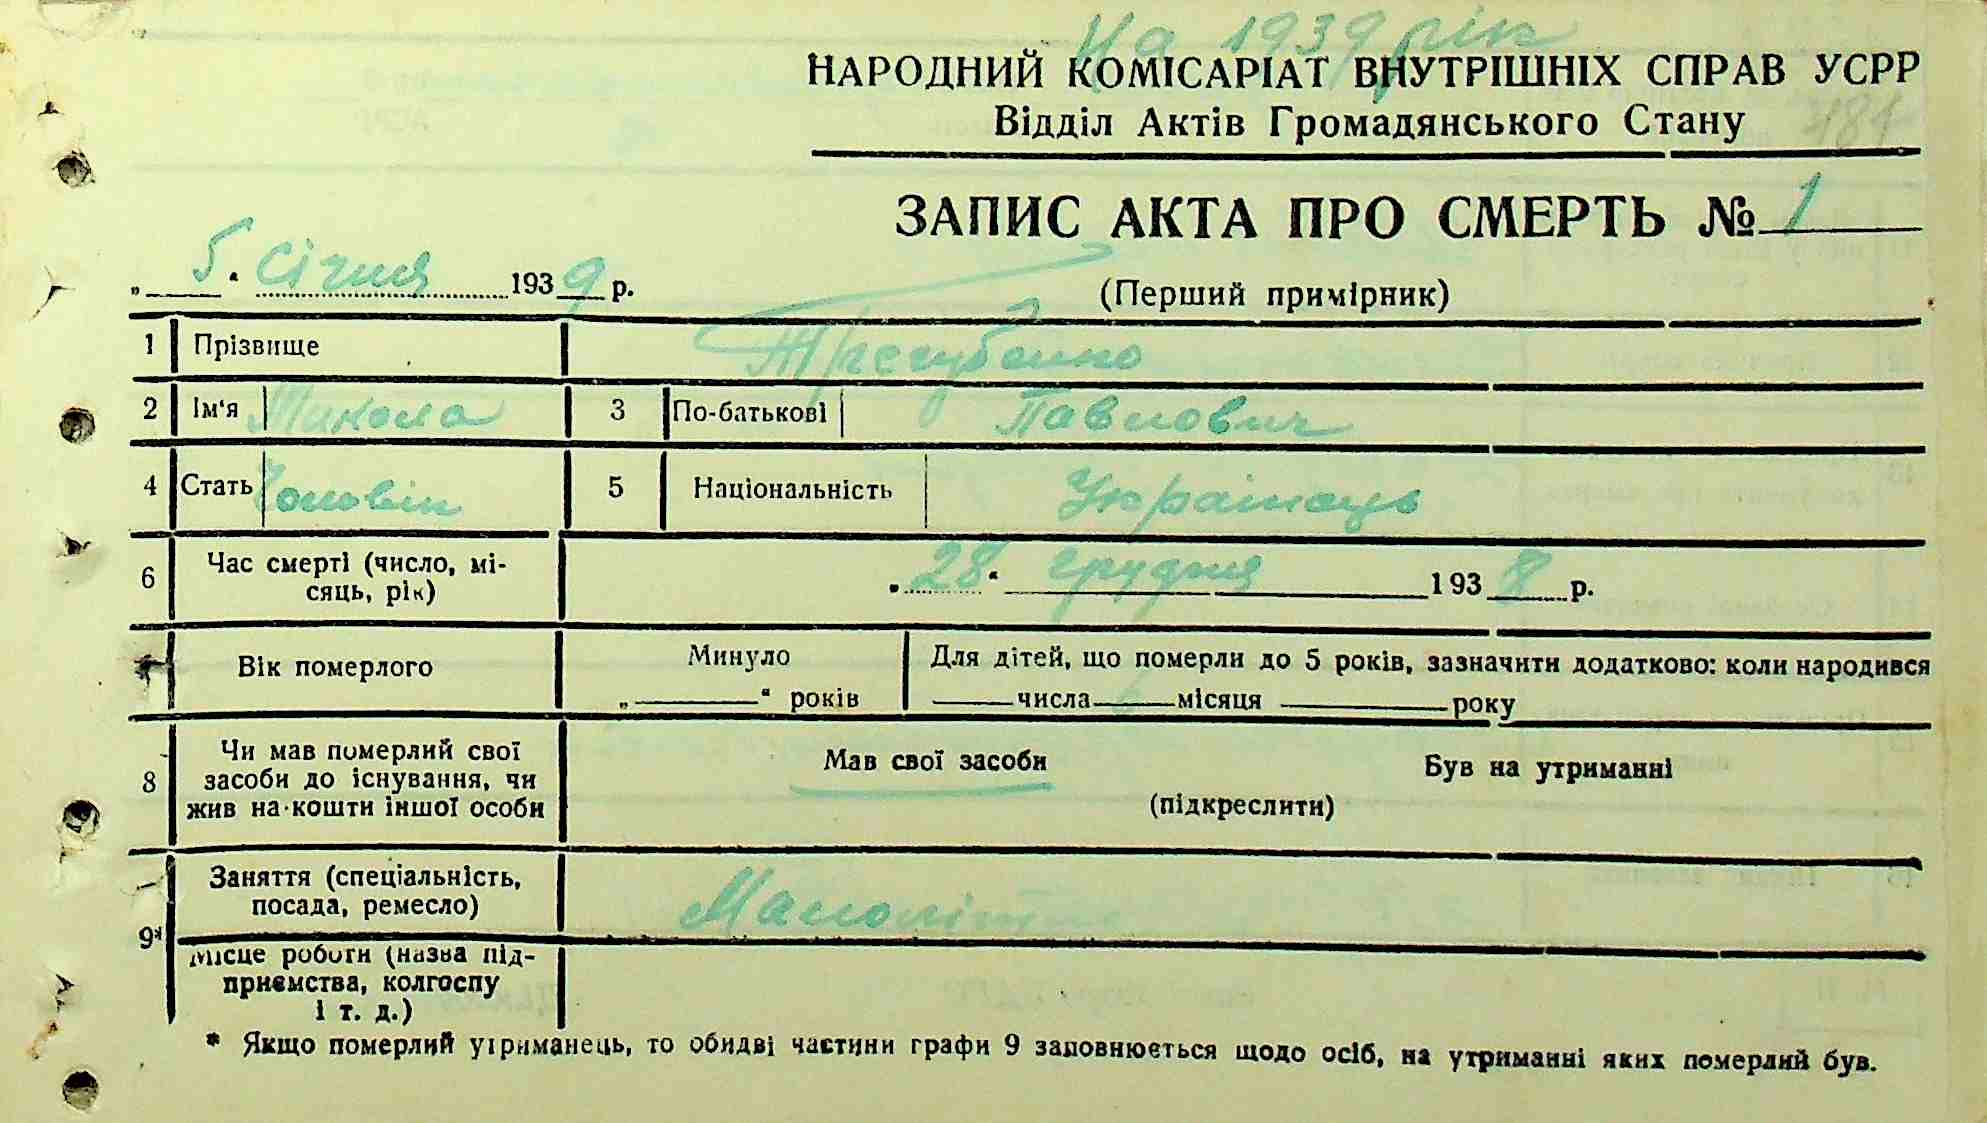 На 1939 рік
НАРОДНИЙ КОМІСАРІАТ ВНУТРІШНІХ СПРАВ УСРР
Відділ Актів Громадянського Стану
484
ЗАПИС АКТА ПРО СМЕРТЬ № 1
„ 5 “ січня 1939 р.
(Перший примірник)
1 Прізвище Трегубенко
2 Ім‘я Микола 3 По-батькові Павлович
4 Стать Чоловік 5 Національність Українець
6 Час смерті (число, мі-
сяць, рік) „ 28 “ грудня 1938 р.
Вік померлого Минуло Для дітей, що померли до 5 років, зазначити додатково: коли народився
„ “ років числа місяця року
8 Чи мав померлий свої
засоби до існування, чи
жив на кошти іншої особи
Мав свої засоби Був на утриманні
(підкреслити)
9* Заняття (спеціальність,
посада, ремесло)
Місце роботи (назва під-
приємства, колгоспу
і т. д.)
* Якщо померлий утриманець, то обидві частини графи 9 заповнюється щодо осіб, на утриманні яких померлий був.